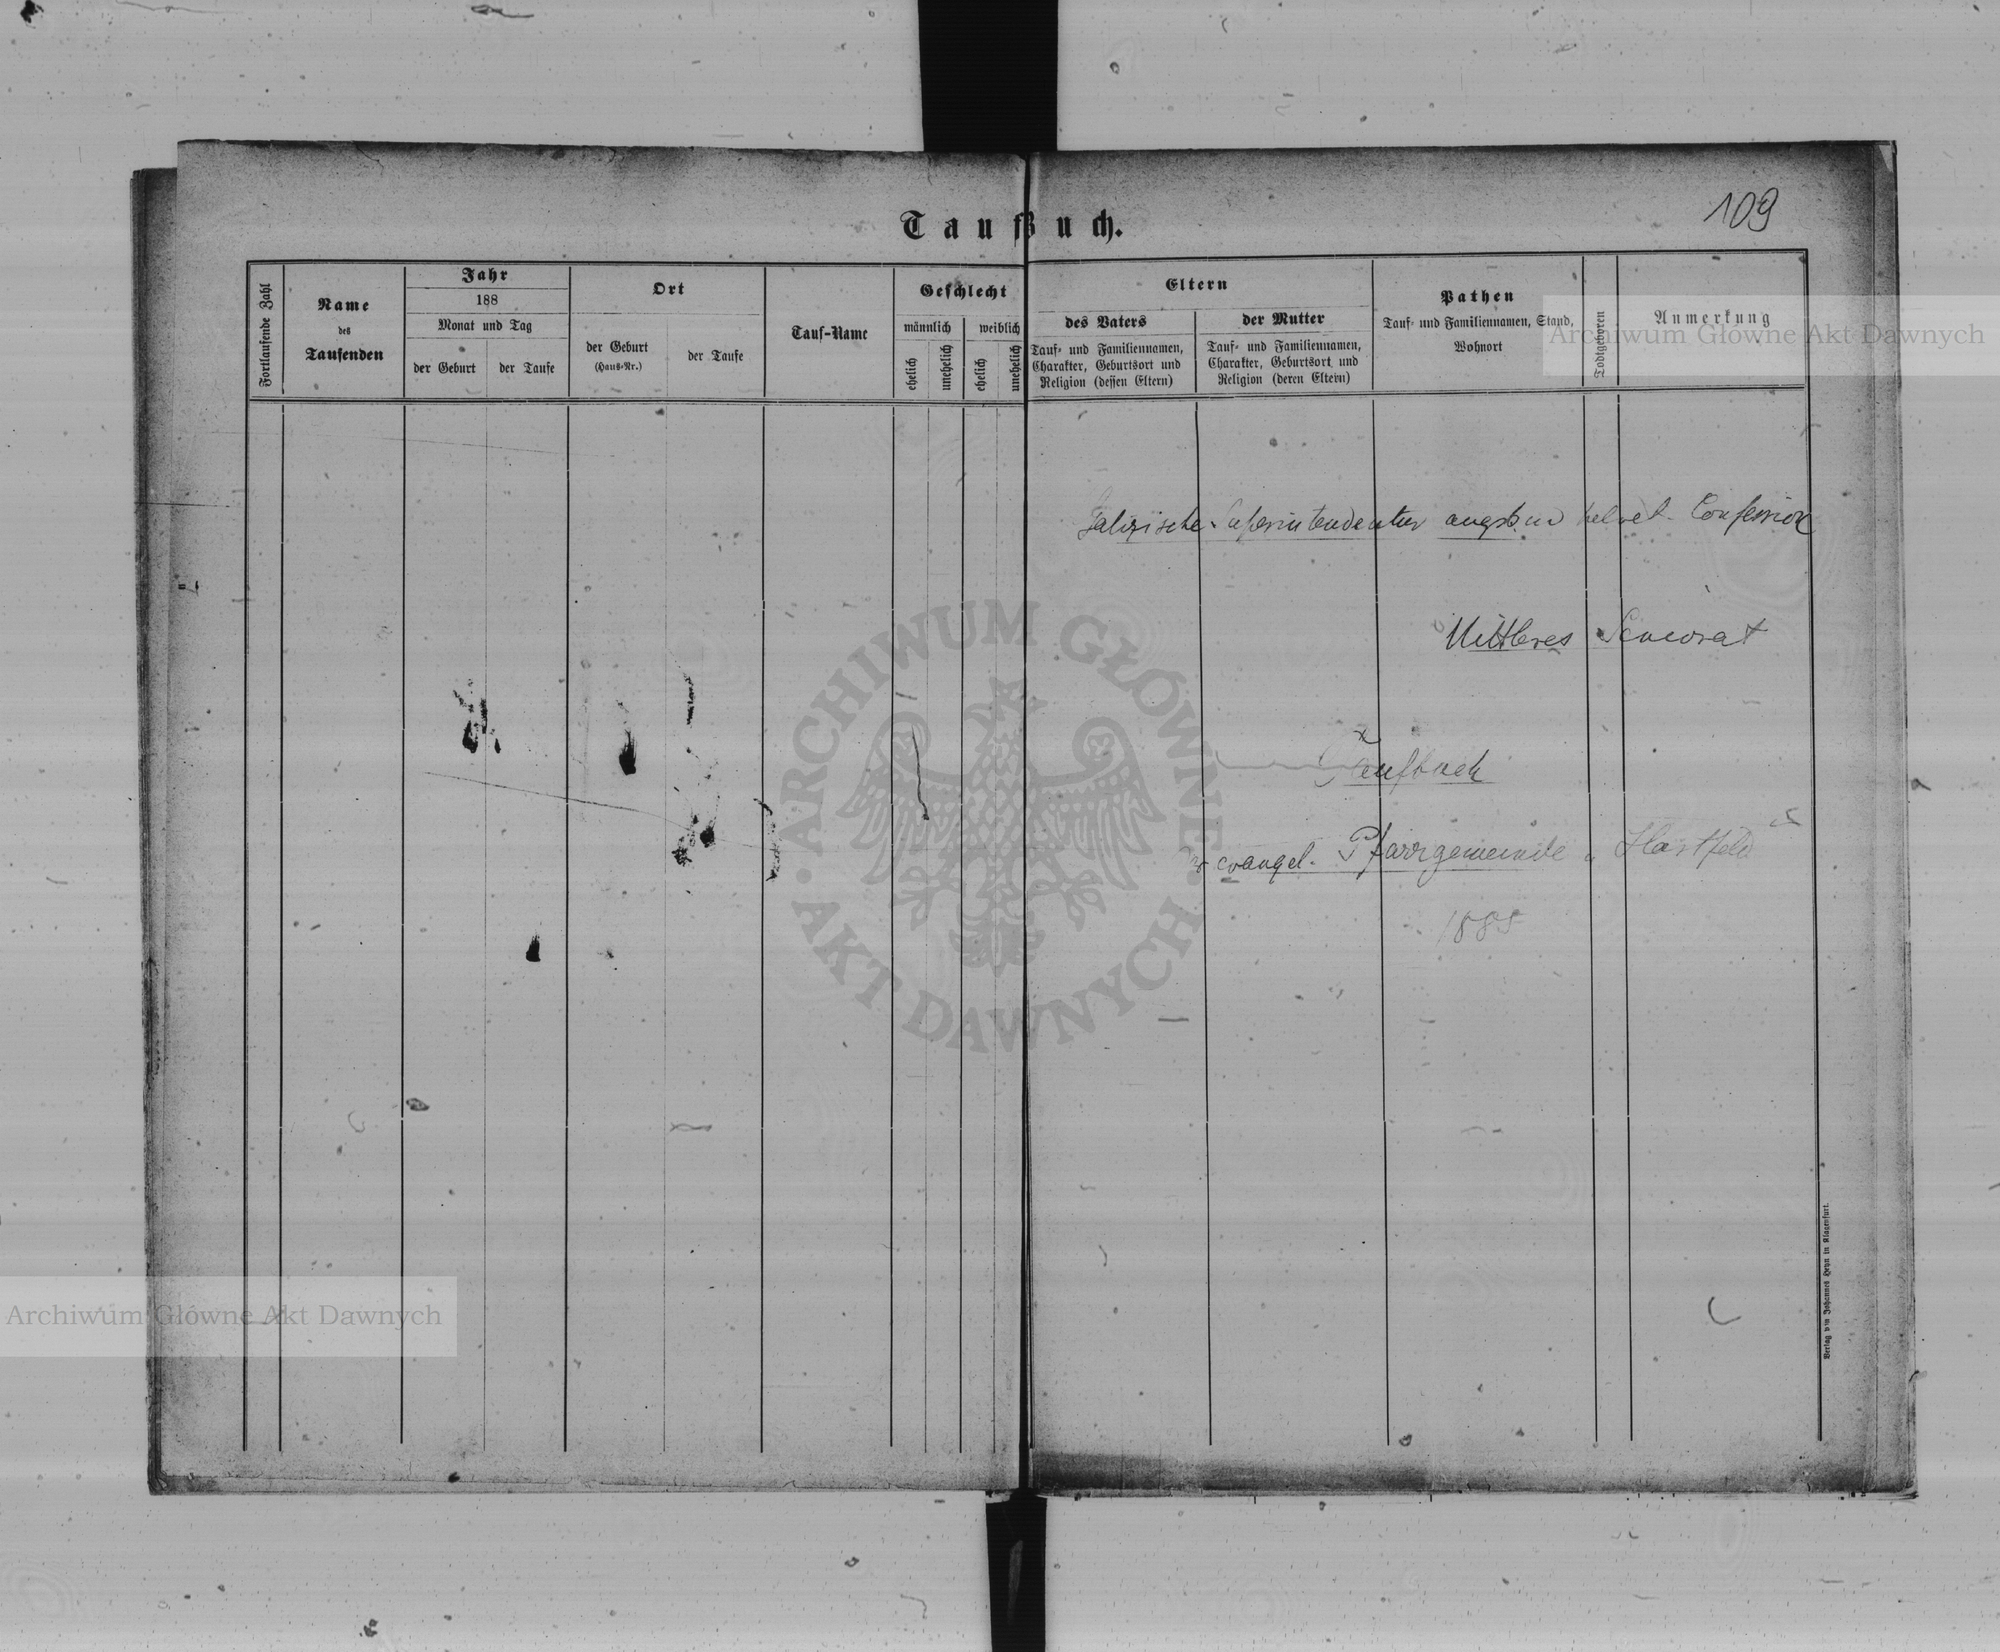 109
Taufbuch.
Fortlaufende Zahl
Name
des
Taufenden
Jahr
188
Monat und Tag
der Geburt
der Taufe
Ort
der Geburt
(Haus-Nr.)
der Taufe
Tauf-Name
Geschlecht
männlich
weiblich
ehelich
unehelich
ehelich
unehelich
Eltern
des Vaters
Tauf- und Familiennamen,
Charakter, Geburtsort und
Religion (dessen Eltern)
der Mutter
Tauf- und Familiennamen,
Charakter, Geburtsort und
Religion (deren Eltern)
Pathen
Tauf- und Familiennamen, Stand,
Wohnort
Todtgeboren
Anmerkung
Archiwum Główne Akt Dawnych
Galizische Superintendentur augsb. u helvet. Confession
Mittleres Seniorat
Taufbuch
der evangel. Pfarrgemeinde Hartfeld
1885
ARCHIWUM GŁÓWNE
AKT DAWNYCH
Archiwum Główne Akt Dawnych
Verlag von Johannes Heyn in Klagenfurt.